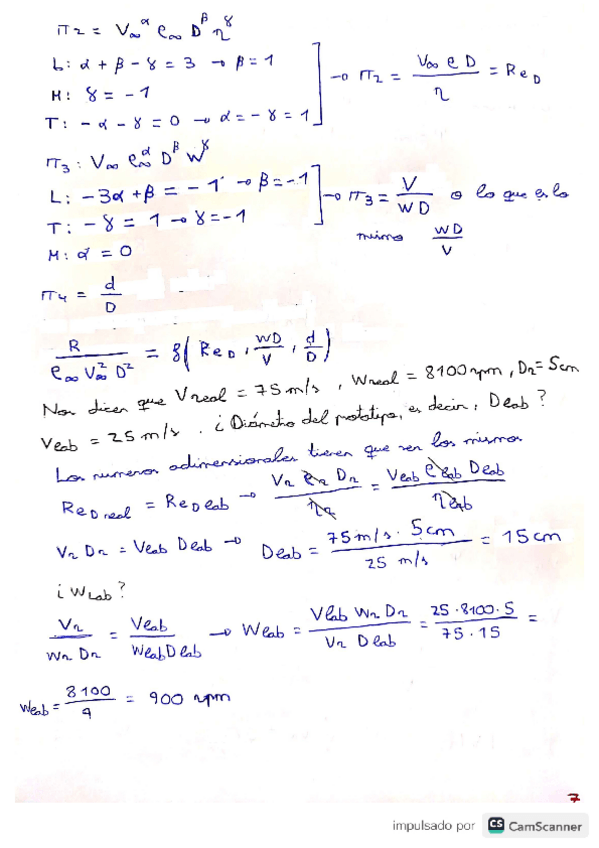 π2 = V∞^α ρ∞ D^β η^γ
L: α + β - γ = 3 → β = 1
M: γ = -1
T: -α - γ = 0 → α = -γ = 1
→ π2 = V∞ ρ D / η = Re_D
π3: V∞ ρ∞^α D^β W^γ
L: -3α + β = -1 → β = -1
T: -γ = 1 → γ = -1
M: α = 0
→ π3 = V / WD o lo que es lo
mismo WD / V
π4 = d / D
R / ρ∞ V∞² D² = f(Re_D, WD/V, d/D)
Nos dicen que Vreal = 75 m/s, Wreal = 8100 rpm, Dr = 5cm
Vlab = 25 m/s. ¿Diámetro del prototipo, es decir, Dlab?
Los numeros adimensionales tienen que ser los mismos
Re_D real = Re_D lab → Vr ρr Dr / ηr = Vlab ρlab Dlab / ηlab
Vr Dr = Vlab Dlab → Dlab = 75 m/s · 5cm / 25 m/s = 15 cm
¿WLab?
Vr / Wr Dr = Vlab / Wlab Dlab → Wlab = Vlab Wr Dr / Vr Dlab = 25 · 8100 · 5 / 75 · 15 =
Wlab = 8100 / 9 = 900 rpm
7
impulsado por CS CamScanner